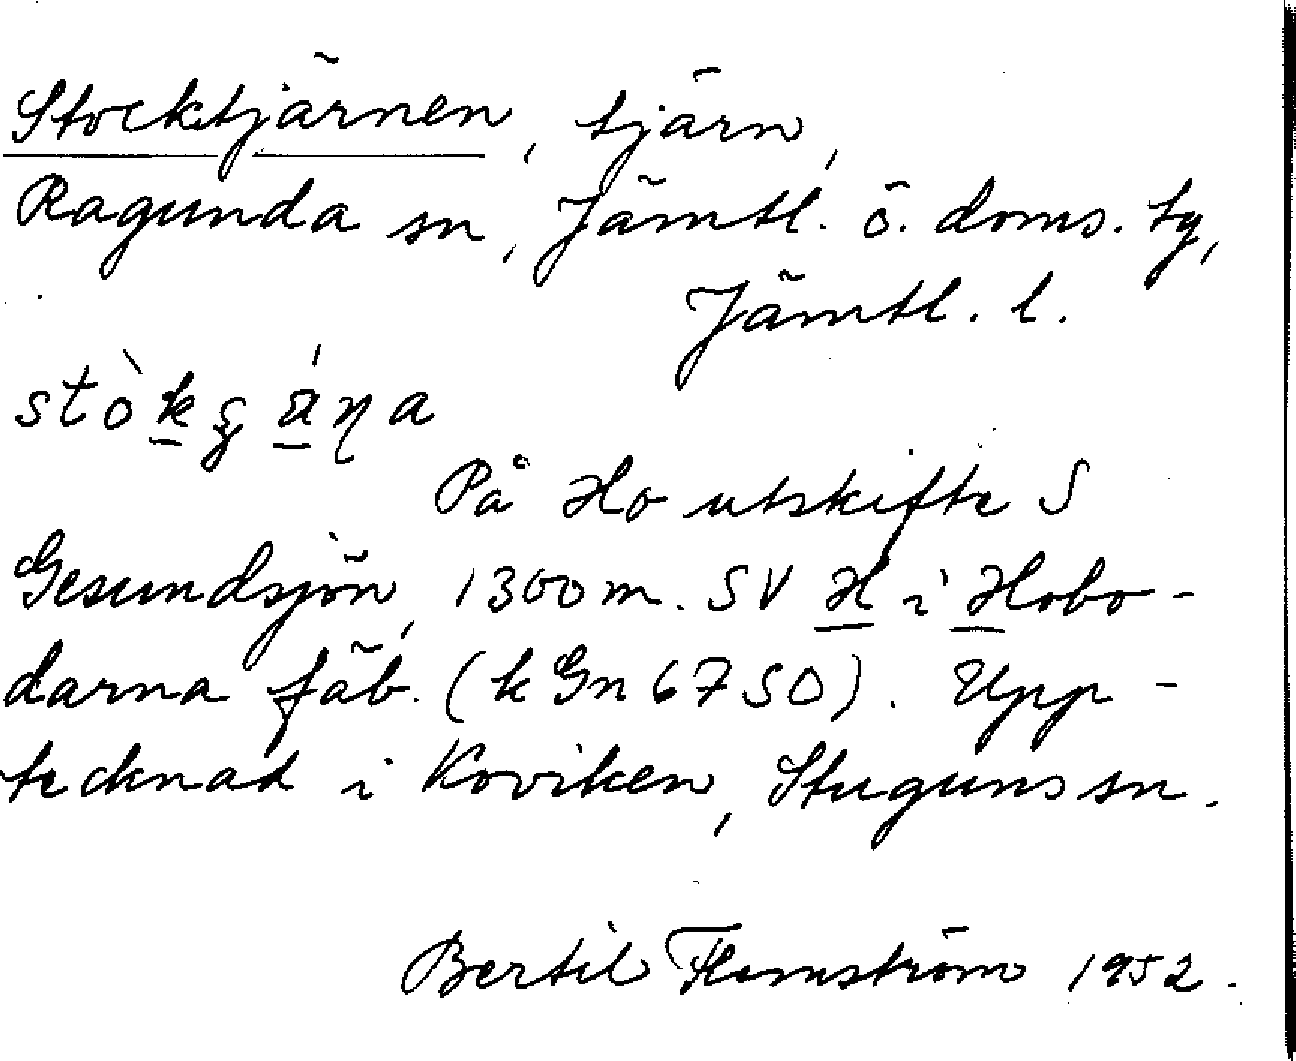 Stocktjärnen, tjärn,
Ragunda sn, Jämtl. ö. doms. tg,
Jämtl. l.
På Ho utskifte S
Gesundsjön, 1300 m. SV H i Hobo-
darna fäb. (k Gn 67 SO). Upp-
tecknat i Koviken, Stuguns sn.
Bertil Flemström 1952.